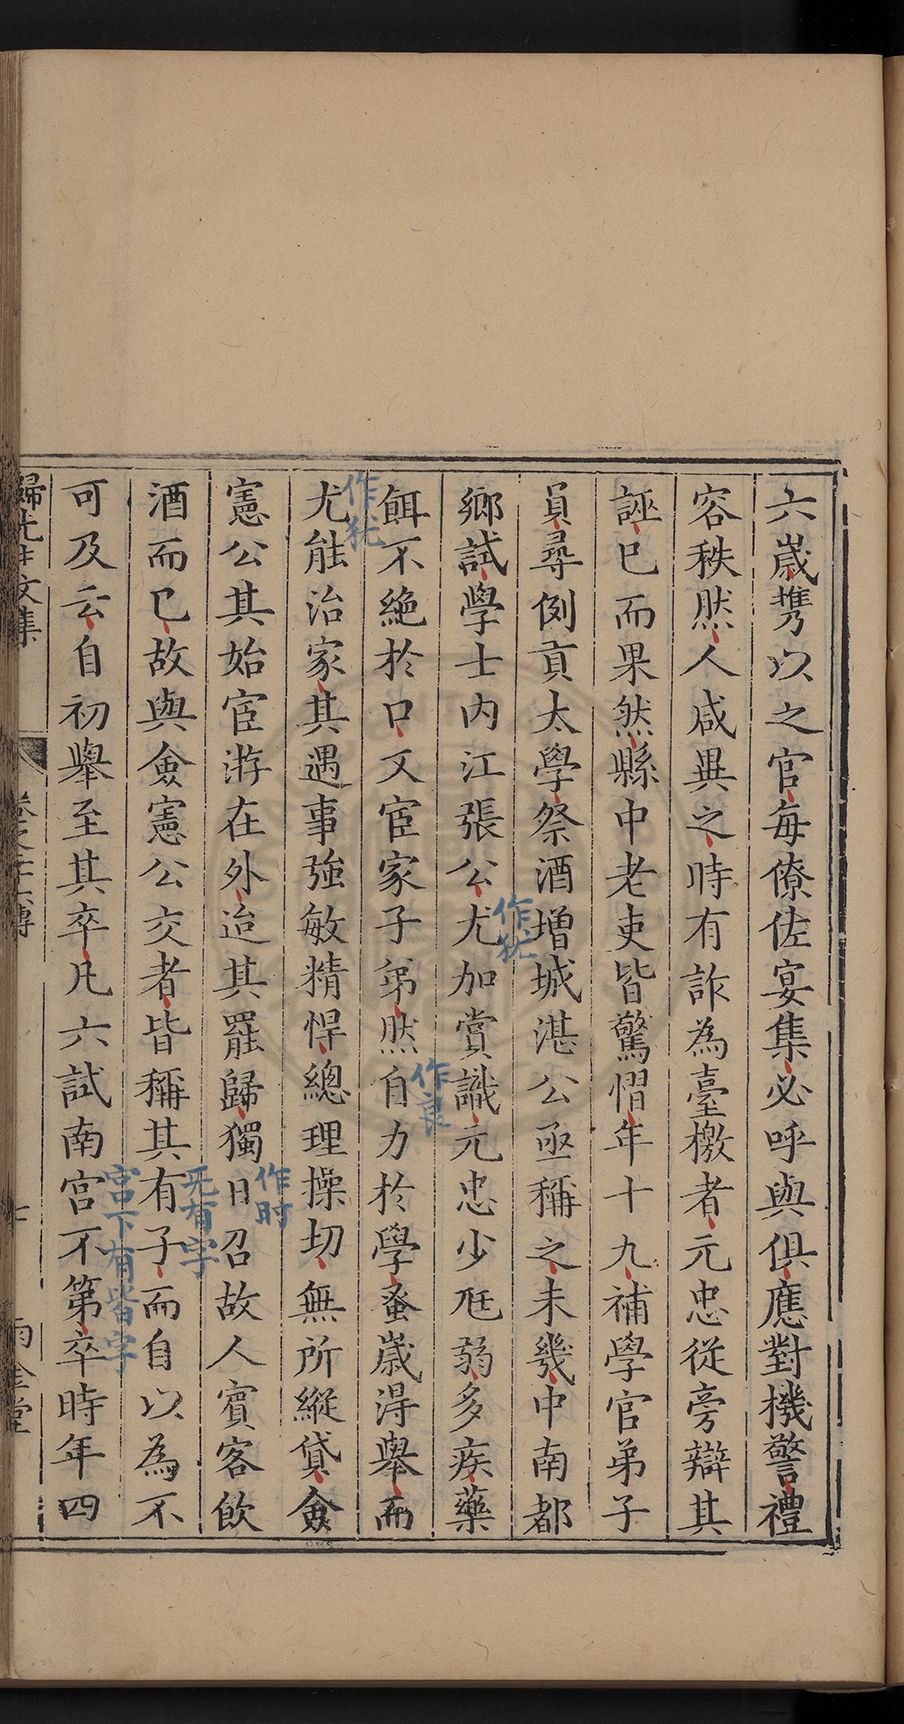 六歲携以之官每僚佐宴集必呼與俱應對機警禮
容秩然人咸異之時有詐為臺檄者元忠從旁辯其
誣已而果然縣中老吏皆驚慴年十九補學官弟子
員尋例貢太學祭酒增城湛公亟稱之未幾中南都
鄉試學士內江張公尤加賞識元忠少尫弱多疾藥
作犹
餌不絶於口又宦家子弟然自力於學蚤歲得舉而
作良
尤能治家其遇事強敏精悍總理操切無所縱貸僉
作犹
憲公其始宦游在外迨其罷歸獨日召故人賓客飲
作时
酒而已故與僉憲公交者皆稱其有子而自以為不
无有字
可及云自初舉至其卒凡六試南宫不第卒時年四
宫下有皆字
歸先生文集